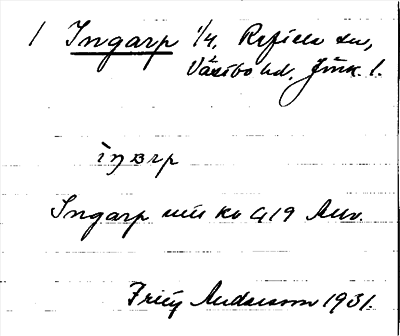 1 Ingarp 1/4, Reftele sn,
Västbo hd. Jönk. l.
ìŋarp
Ingarp uu ko G19 Auv.
Fritz Andersson 1931.